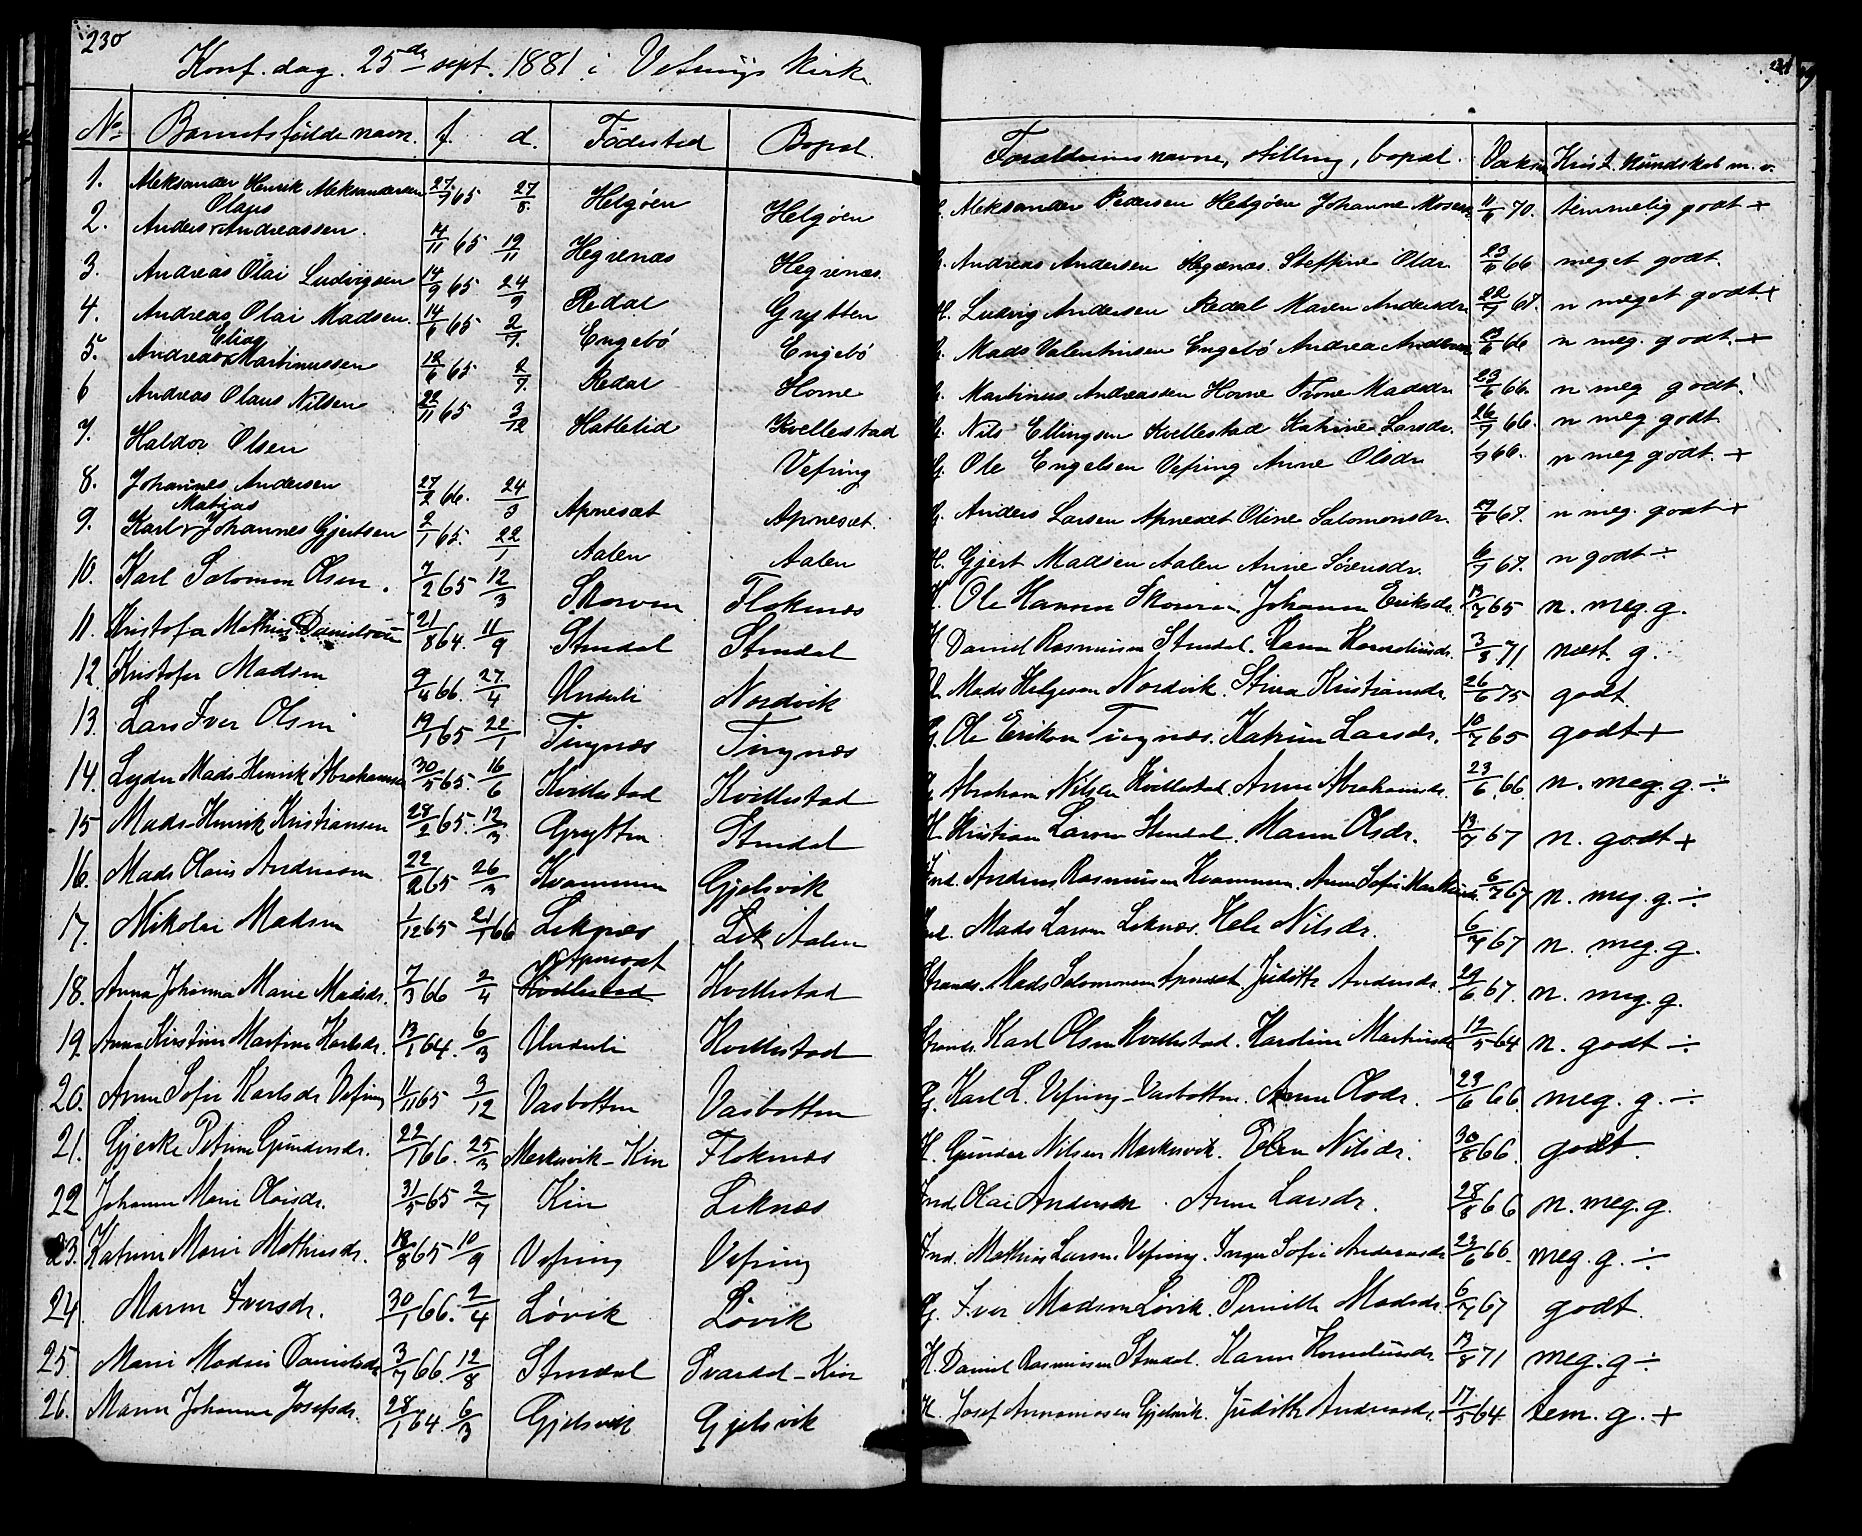 230
Konf. dag. 25de sept. 1881 i Vefrings Kirke
No Barnets fulde navn. f. d. Födested Bopæl. Forældrenes navne, stilling, bopæl. Vaksin Krist. Kundskab m. v.
1. Aleksander Henrik Aleksandersen 27/7 65 27/8 Helgöen Helgöen Aleksander Pedersen Helgöen Johanne Mosesd 11/6 70. temmelig godt +
2. Anders Olaus Andreassen. 14/11 65 19/11 Hegrenæs Hegrenæs. G. Andreas Andersen Hegrenæs. Steffine Olsdr. 23/6 66 meget godt.
3. Andreas Olai Ludvigsen 14/9 65 24/9 Redal Grytten H. Ludvig Andersen Redal Maren Andersdr. 22/7 67. n meget godt. +
4. Andreas Olai Madsen. 14/6 65 2/7. Engebö Engebö G. Mads Valentinsen Engebö Andrea 66 n meg. godt. +
5. Andreas Elias Martinussen 18/6 65 2/7. Redal Horne G. Martinus Andreassen Horne Madsdr. 23/6 66. n meg godt.
6 Andreas Olaus Nilsen 22/11 65 3/12 Hatletid Kvellestad G. Nils Ellingsen Kvellestad Katrine Larsdr. 26/7 66. n meg godt
7. Haldor Olsen Vefring G. Ole Engelsen Vefring Anne Olsdr 66. n meg godt. +
8. Johannes Andersen 27/2 66. 24/3 Apnesæt Apnesæt. G. Anders Larsen Apnesæt Oline Salomonsdr. 29/6 67. n meg. godt +
9. Karl Matias Johannes Gjertsen 2/1 65. 22/1 Aalen Aalen H. Gjert Madsen Aalen Anne Sörensdr. 6/7 67. n godt ÷
10. Karl Salomon Olsen. 7/2 65 12/3 Skorven Floknæs H. Ole Hansen Skorven Johanna Eriksdr. 13/7 65 n. meg. g.
11. Kristofer Mathias Danielsen 21/8 64. 11/9 Stendal Stendal H Daniel Rasmussen Stendal. Karen Korneliusdr. 3/8 71 næst. g.
12 Kristofer Madsen 9/4 66. 27/4 Underli Nordvik Mads Helgesen Nordvik. Stina Kristiansdr 26/6 75 godt
13. Lars Iver Olsen 19/1 65 22/1 Tingnæs Tingnæs G. Ole Eriksen Tingnæs. Katrine Larsdr. 10/7 65 godt +
14. Lyder Mads Henrik Abrahamsen 30/5 65. 16/6 Kvellestad Kvellestad G Abraham Nilsen Kvellestad. Anne Abrahamsdr. 23/6 66. n. meg. g. ÷
15 Mads Henrik Kristiansen 28/2 65. 12/3 Grytten Stendal H. Kristian Larsen Stendal. Maren Olsdr. 13/7 67 n. godt +
16. Mads Olaus Andersen 22/2 65 26/3 Kvammen Gjelsvik Ind. Andreas Rasmussen Kvammen. Anne Sofie 6/7 67 n. meg. g. ÷
17. Nikolai Madsen 1/12 65 21/1 66 Leknæs Lek Aalen Ind. Mads Larsen Leknæs. Hele Nilsdr. 6/7 67 n. meg. g.
18. Anna Johanna Marie Madsdr. 7/3 66 2/4 Kvellestad Apnesæt Kvellestad Strands. Mads Salomonsen Apnesæt. Judith Andersdr. 29/6 67. n. meg. g.
19. Anna Kirstine Martine Karlsdr. 13/1 64. 6/3 Underli Kvellestad Strands. Karl Olsen Kvellestad. Karoline Martinsdr 12/5 64 n. godt ÷
20. Anne Sofie Karlsdr Vefring 11/11 65 3/12 Vasbotten Vasbotten G. Karl L. Vefring Vasbotten. Anne Olsdr. 23/6 66 meg. g. ÷
21. Gjerke Petrine Gundersdr. 22/1 66. 25/3 Merkesvik - Kin Floknæs H. Gunder Nilsen Merkesvik. Elen Nilsdr. 30/8 66. godt
22 Johanne Marie Olaisdr. 31/5 65 2/7 Kin Leknæs Ind. Olai Andersen. Anne Larsdr. 28/8 66 n. meg. g.
23. Katrine Marie Mathiasdr. 18/8 65 10/9 Vefring Vefring Ind. Mathias Larsen Vefring. Inger Sofie Andersdr 23/6 66. meg. g. ÷
24. Maren Iversdr. 30/1 66. 2/4 Lövik Lövik G. Iver Madsen Lövik. Pernille Madsdr. 6/7 67 godt
25. Marie Madsine Danielsdr 3/7 66. 12/8 Stendal Svardal - Kin H Daniel Rasmussen Stendal. Karen Korneliusdr. 13/8 71 meg. g ÷
26. Maren Johanne Josefsdr. 28/1 64. 6/3 Gjelsvik Gjelsvik H. Josef Gjelsvik. Judith Andreasdr. 17/5 64 tem. g. +